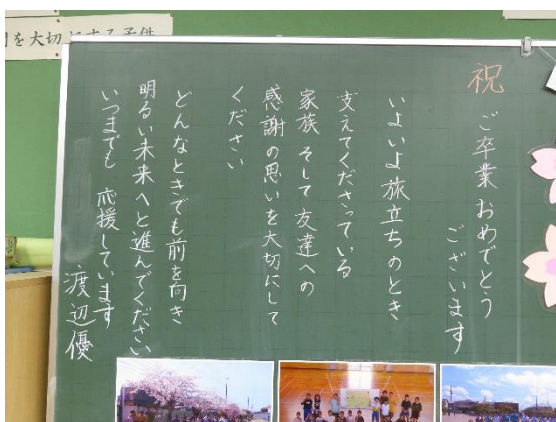 祝
ご卒業おめでとう
ございます
いよいよ旅立ちのとき
支えてくださっている
家族 そして友達への
感謝の思いを大切にして
ください
どんなときでも前を向き
明るい未来へと進んでください
いつまでも 応援しています
渡辺優
を大切にする子供